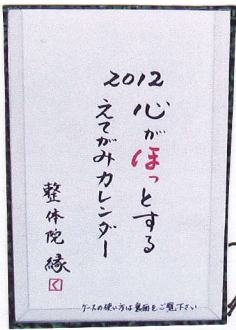 2012
心がほっとする
えてがみカレンダー
整体院 縁
く
ケースの使い方は裏面をご覧下さい